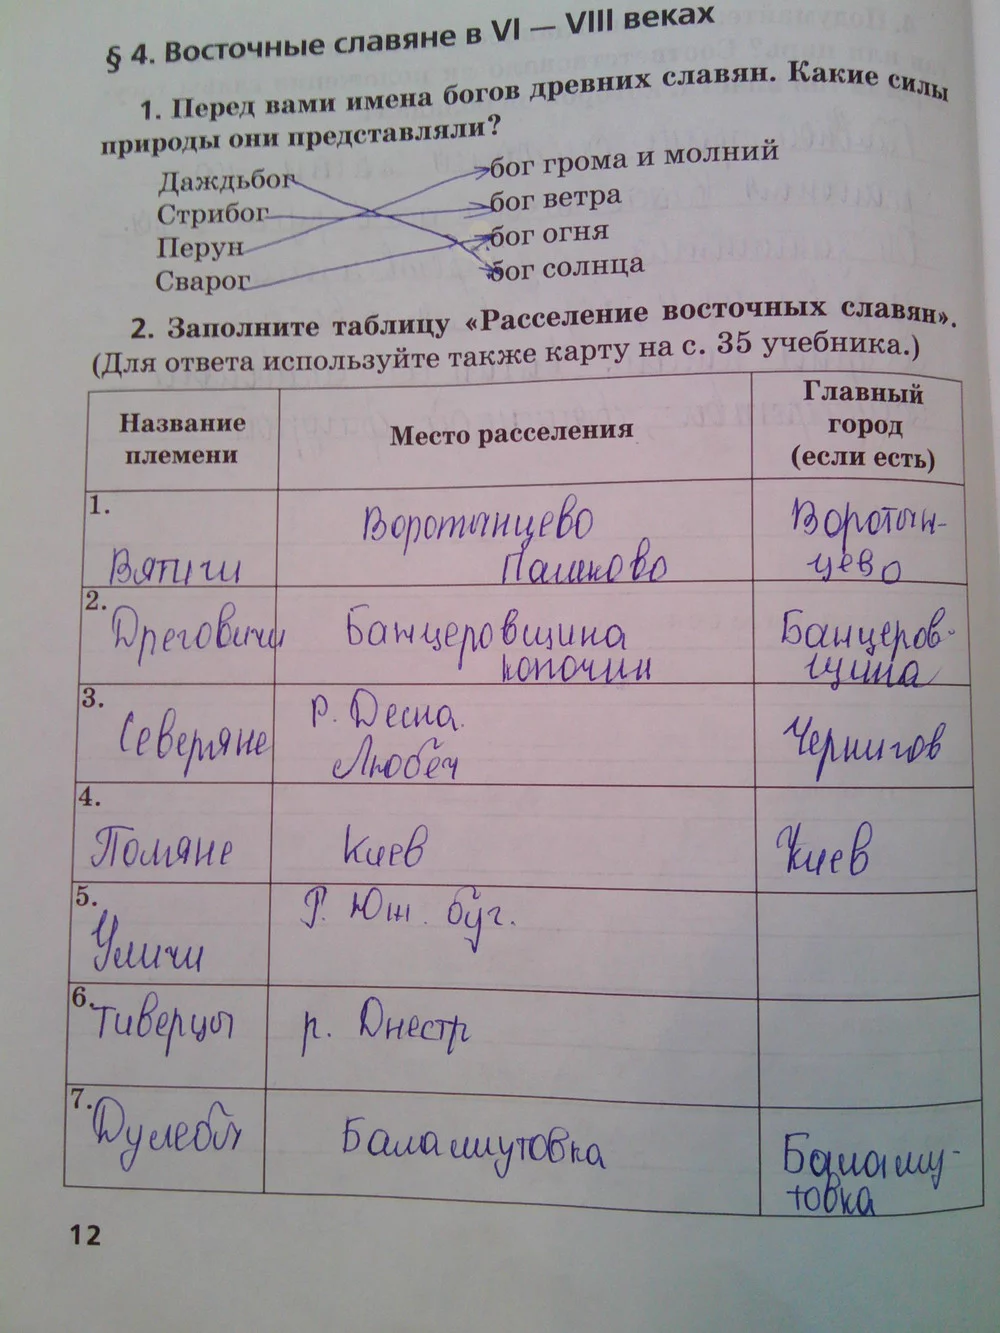 § 4. Восточные славяне в VI — VIII веках
1. Перед вами имена богов древних славян. Какие силы
природы они представляли?
Даждьбог бог грома и молний
Стрибог бог ветра
Перун бог огня
Сварог бог солнца
2. Заполните таблицу «Расселение восточных славян».
(Для ответа используйте также карту на с. 35 учебника.)
Название
племени
Место расселения
Главный
город
(если есть)
1.
Вятичи
Воротынцево
Пашково
Воротын-
цево
2.
Дреговичи
Банцеровщина
копочин
Банцеров-
щина
3.
Северяне
р. Десна.
Любеч
Чернигов
4.
Поляне
Киев
Киев
5.
Уличи
Р. Юж. буг.
6.
Тиверцы
р. Днестр
7.
Дулебы
Баламутовка
Баламу-
товка
12